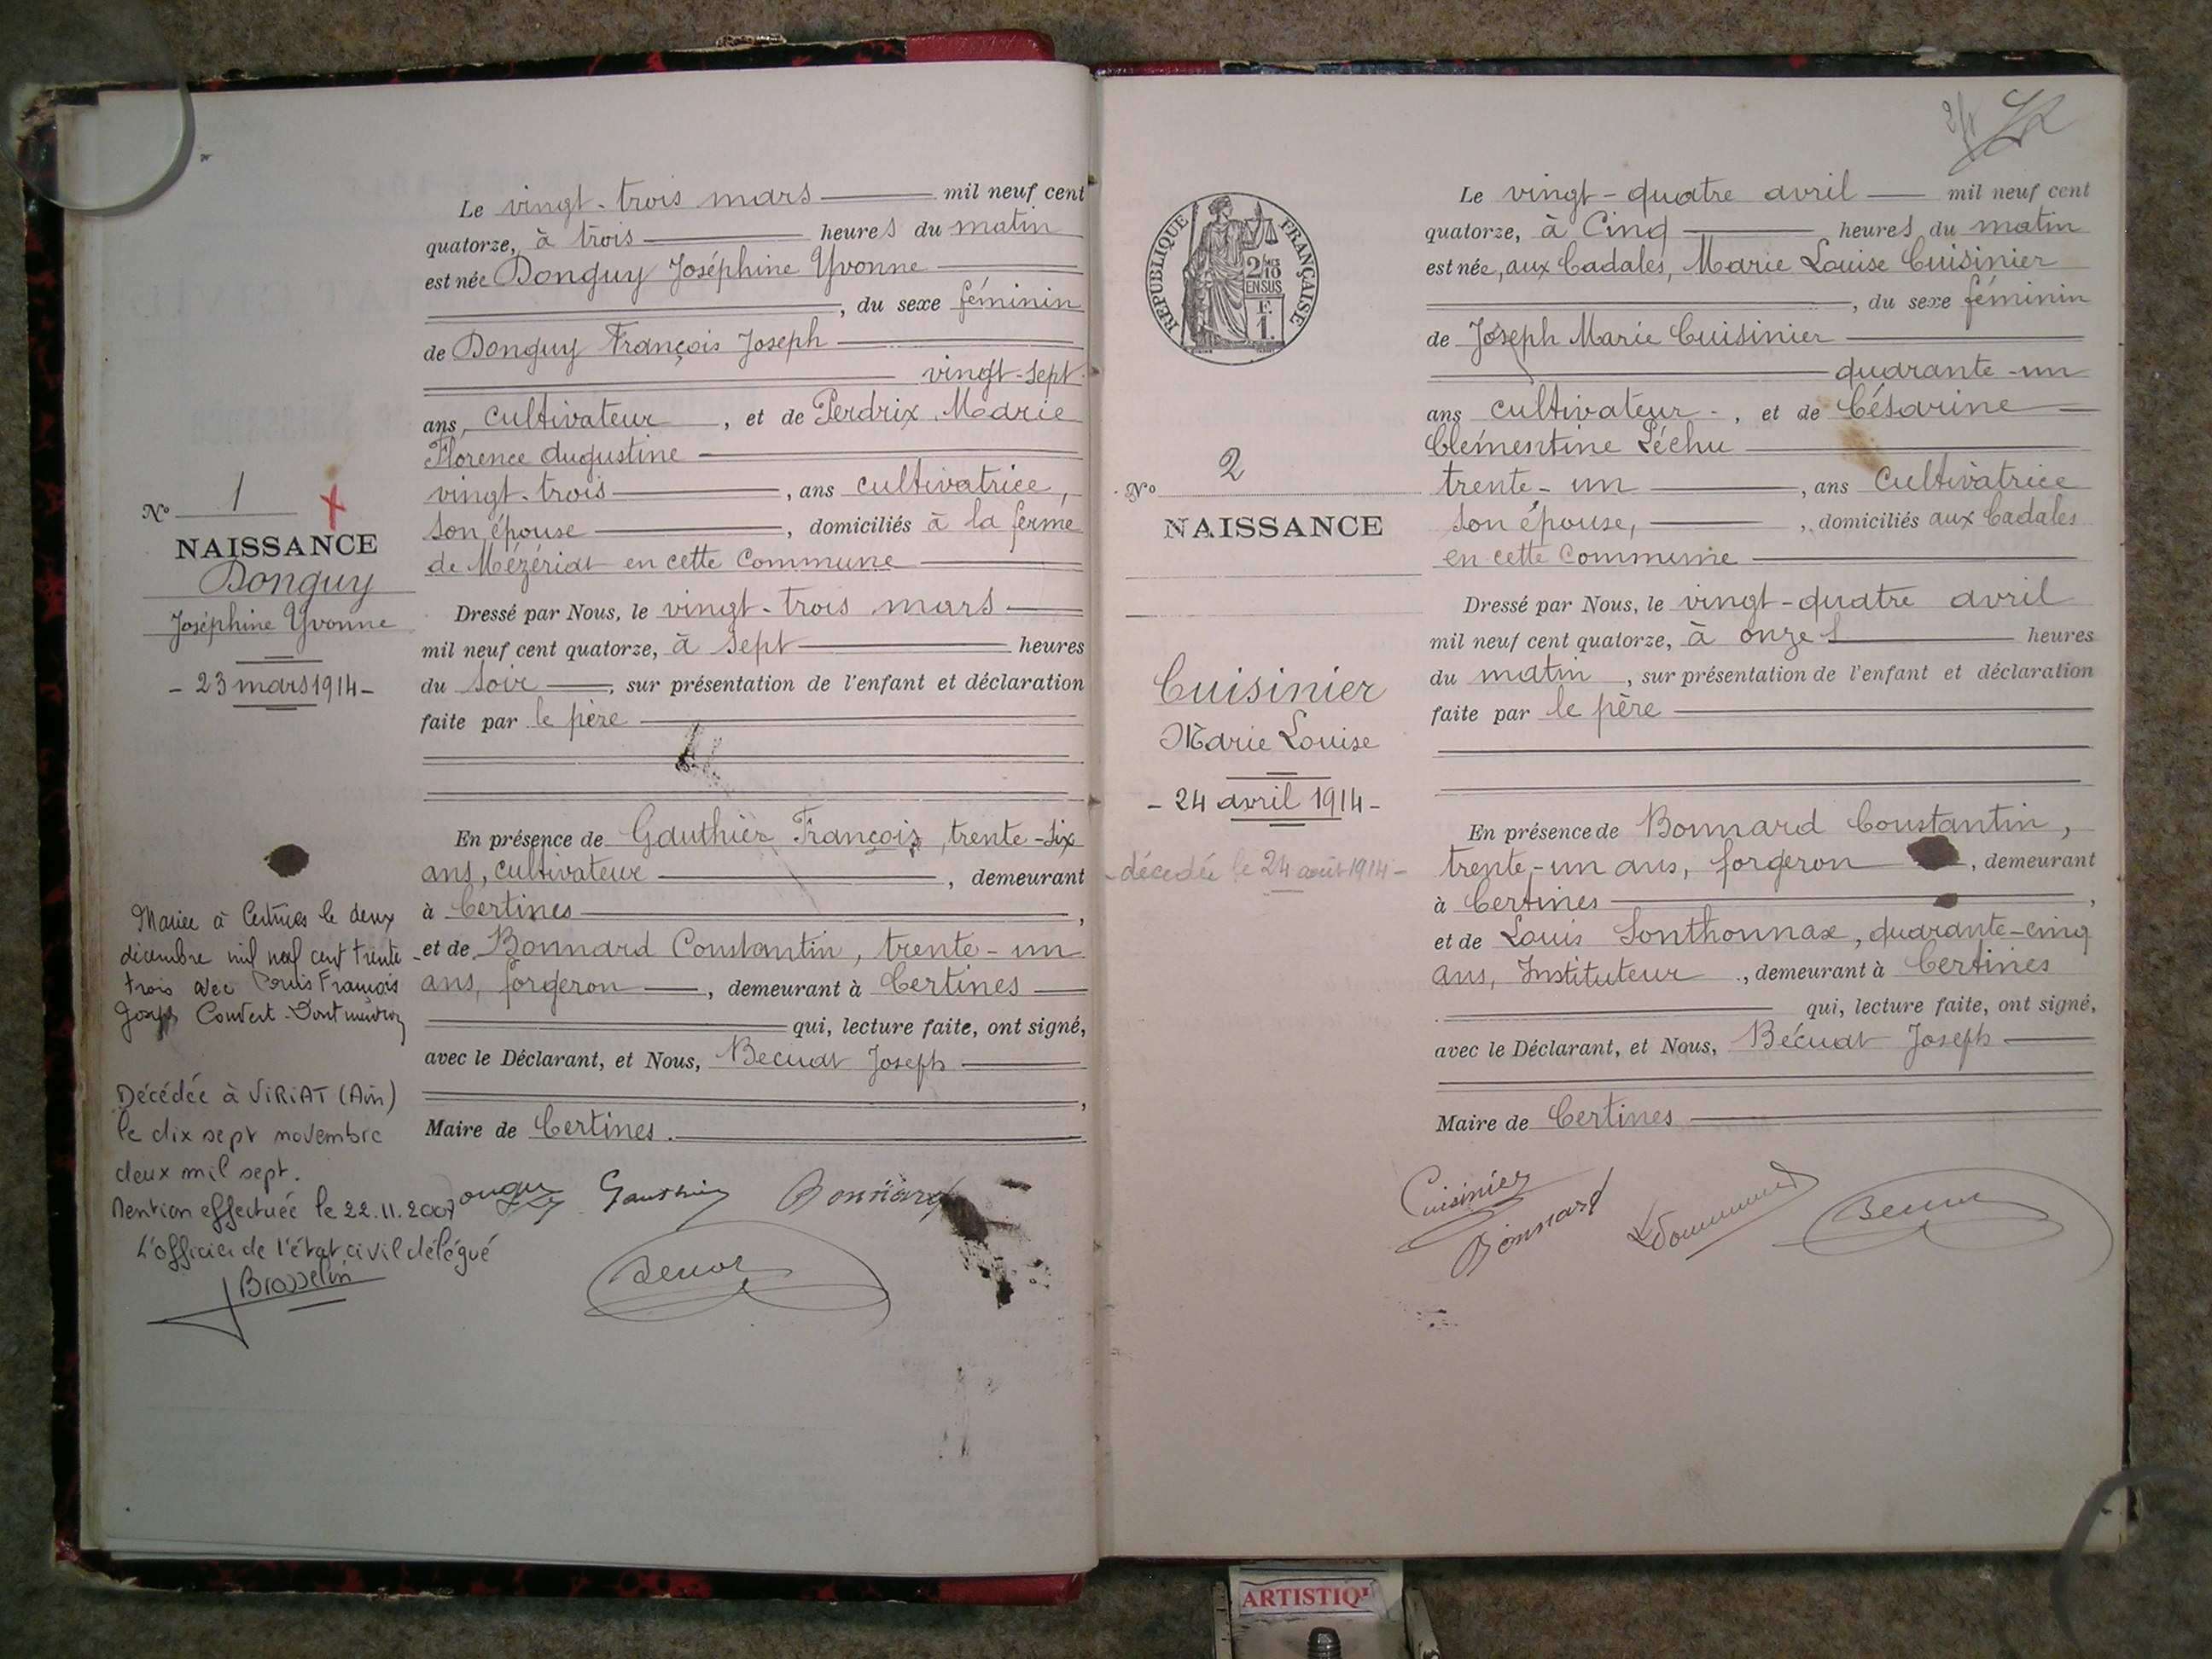 Le vingt-trois mars mil neuf cent
quatorze, à trois heures du matin
est née Donguy Joséphine Yvonne
, du sexe féminin
de Donguy François Joseph
vingt-sept
ans, cultivateur, et de Perdrix Marie
Florence Augustine
vingt-trois, ans cultivatrice,
son épouse, domiciliés à la ferme
de Mézériat en cette commune
Nº 1
NAISSANCE
Donguy
Joséphine Yvonne
- 23 mars 1914 -
Dressé par Nous, le vingt-trois mars
mil neuf cent quatorze, à sept heures
du soir, sur présentation de l'enfant et déclaration
faite par le père
En présence de Gauthier François, trente-six
ans, cultivateur, demeurant
à Certines,
et de Bonnard Constantin, trente-un
ans, forgeron, demeurant à Certines
qui, lecture faite, ont signé,
avec le Déclarant, et Nous, Becuat Joseph
,
Maire de Certines.
Mariée à Certines le deux
décembre mil neuf cent trente
trois avec Louis François
Joseph Convert
Décédée à VIRIAT (Ain)
le dix sept novembre
deux mil sept.
Mention effectuée le 22.11.2007
L'officier de l'état civil délégué
Brosselin
Gauthier Bonnard
Becuat
2
RÉPUBLIQUE FRANÇAISE
2/10 EN SUS
F.
1.
Nº 2
NAISSANCE
Cuisinier
Marie Louise
- 24 avril 1914 -
- décédée le 24 août 1914 -
Le vingt-quatre avril mil neuf cent
quatorze, à Cinq heures du matin
est née, aux Cadales, Marie Louise Cuisinier
, du sexe féminin
de Joseph Marie Cuisinier
quarante-un
ans cultivateur, et de Césarine
Clémentine Léchu
trente-un, ans Cultivatrice
son épouse, domiciliés aux Cadales
en cette Commune
Dressé par Nous, le vingt-quatre avril
mil neuf cent quatorze, à onze heures
du matin, sur présentation de l'enfant et déclaration
faite par le père
En présence de Bonnard Constantin,
trente-un ans, forgeron, demeurant
à Certines,
et de Louis Sonthonnax, quarante-cinq
ans, Instituteur, demeurant à Certines
qui, lecture faite, ont signé,
avec le Déclarant, et Nous, Bécuat Joseph
Maire de Certines
Cuisinier
Bonnard
Becuat
ARTISTIQ